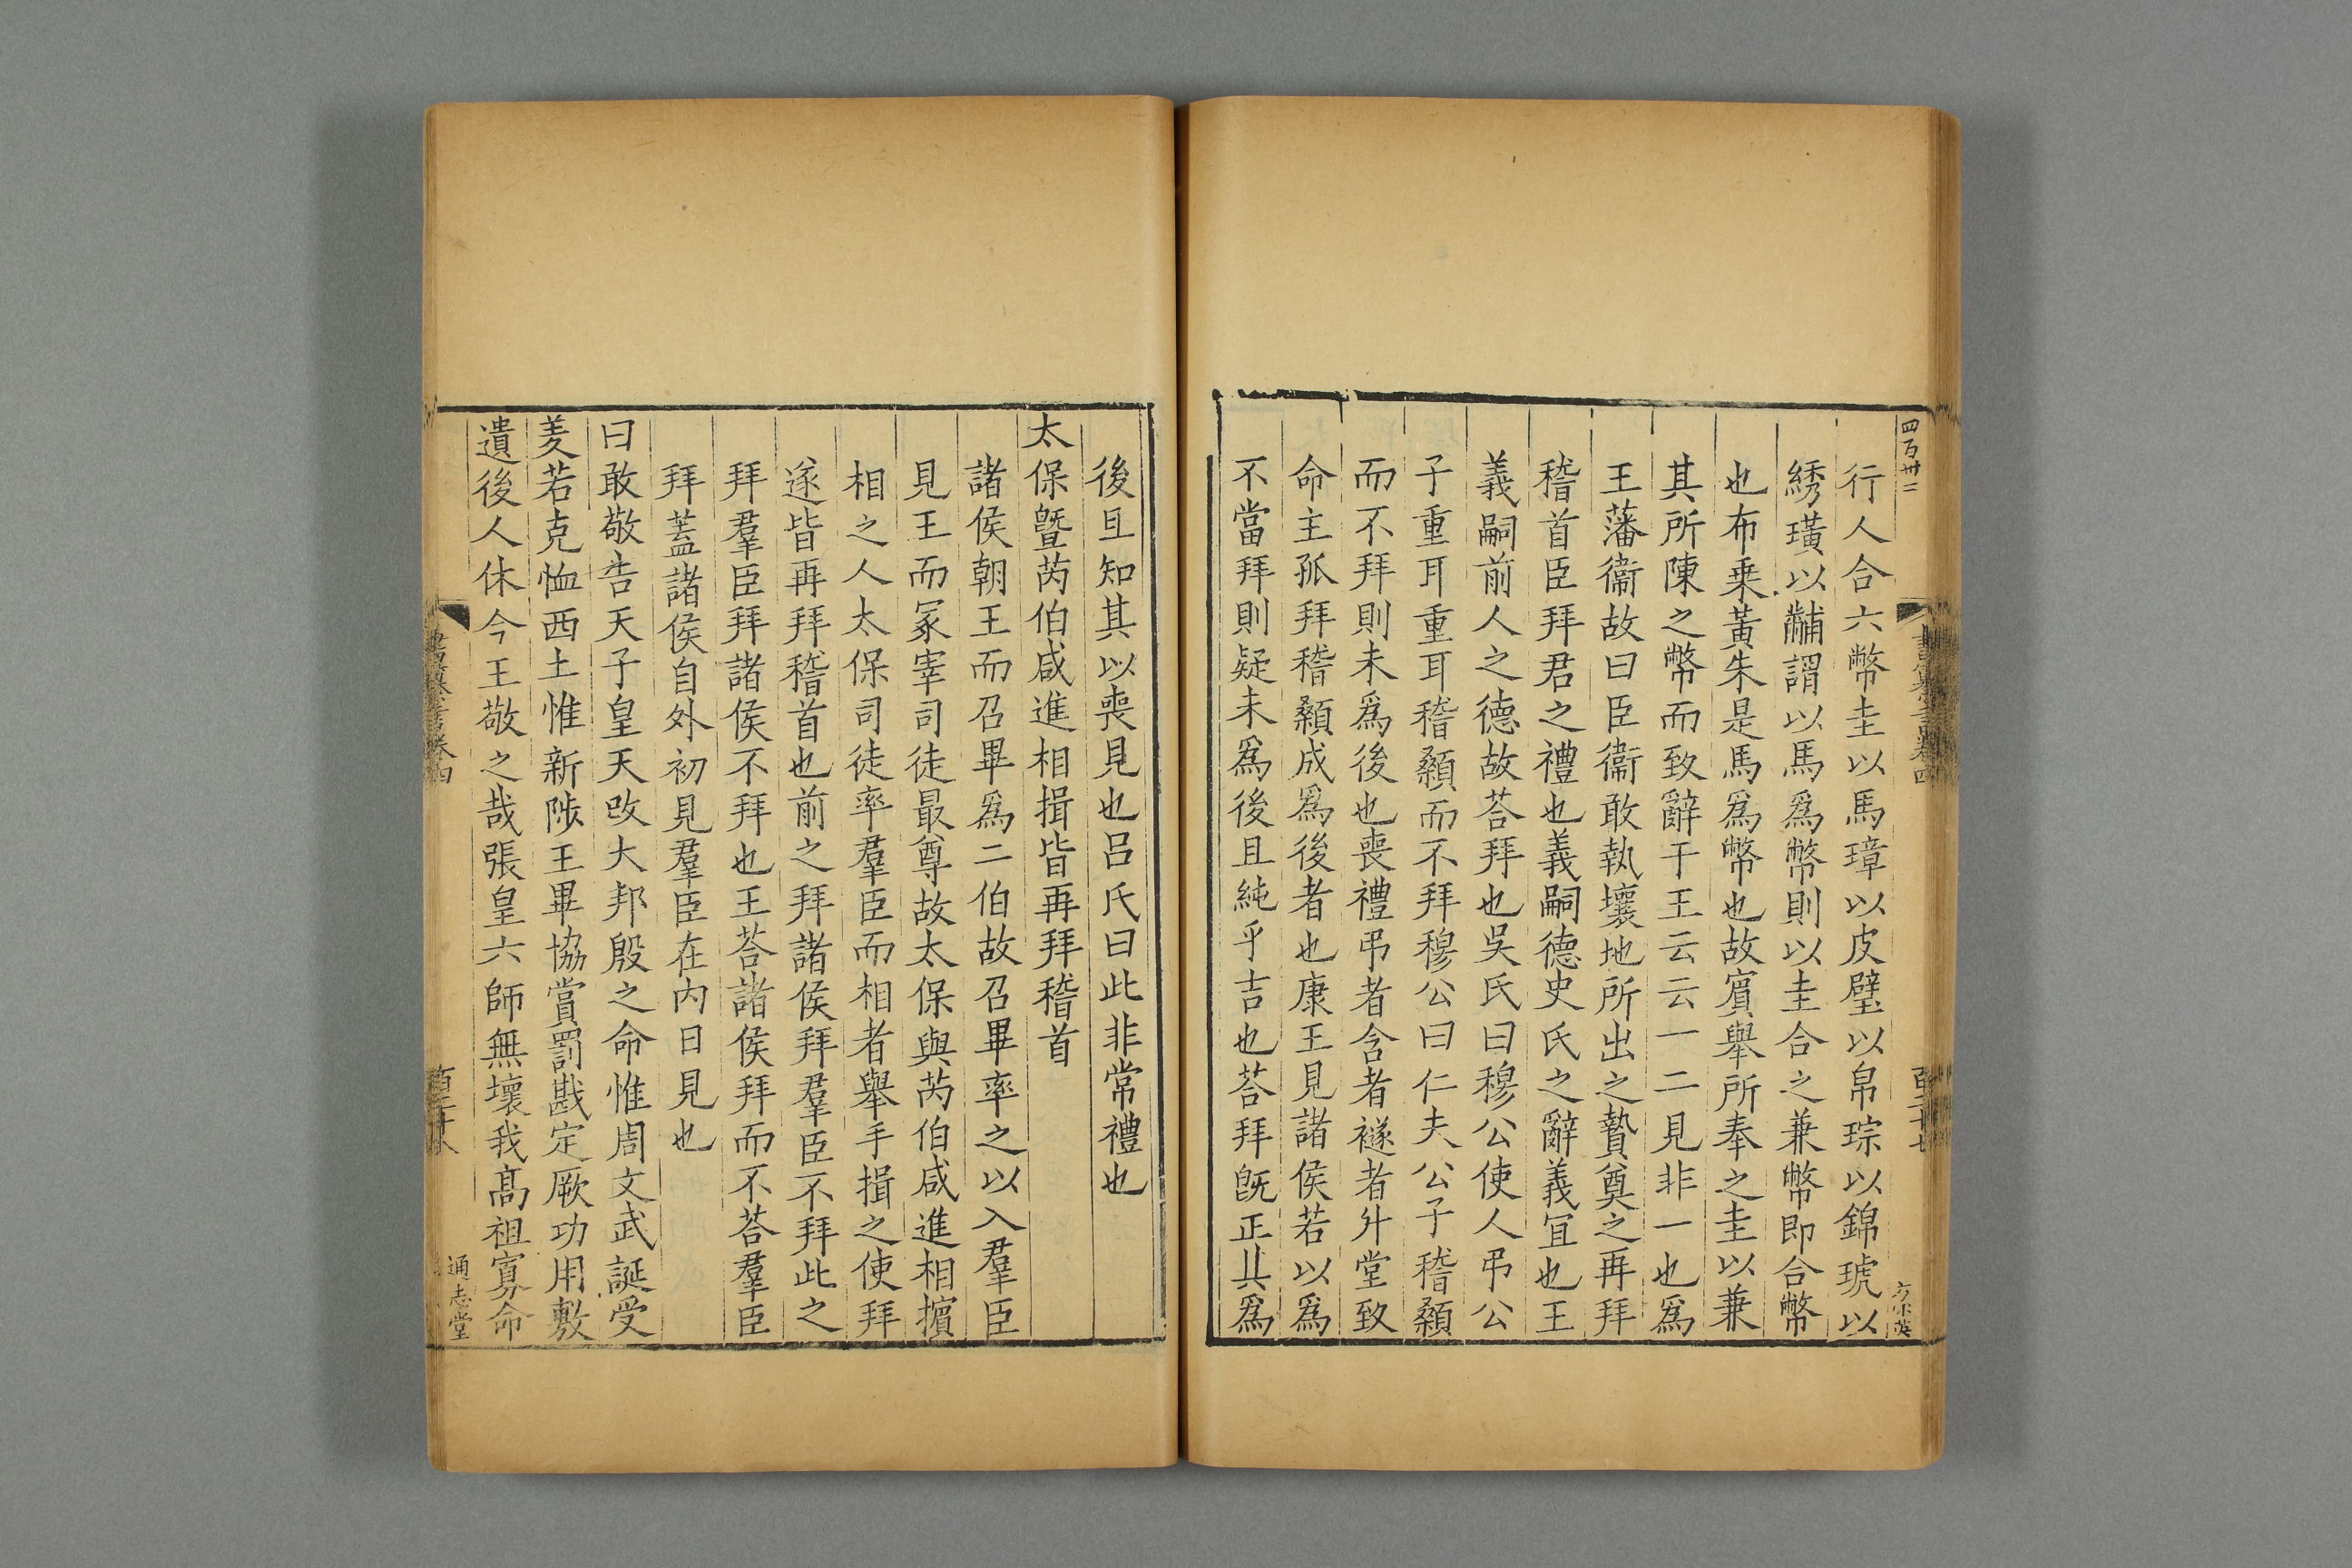 四百卅二
行人合六幣圭以馬璋以皮璧以帛琮以錦琥以
綉璜以黼謂以馬爲幣則以圭合之兼幣即合幣
也布乗黃朱是馬爲幣也故賔舉所奉之圭以兼
其所陳之幣而致辭于王云云一二見非一也爲
王藩衞故曰臣衞敢執壤地所出之贄奠之再拜
稽首臣拜君之禮也義嗣德史氏之辭義冝也王
義嗣前人之德故荅拜也吳氏曰穆公使人弔公
子重耳重耳稽顙而不拜穆公曰仁夫公子稽顙
而不拜則未爲後也喪禮弔者含者襚者升堂致
命主孤拜稽顙成爲後者也康王見諸侯若以爲
不當拜則疑未爲後且純乎吉也荅拜旣正其爲
後且知其以喪見也吕氏曰此非常禮也
太保曁芮伯咸進相揖皆再拜稽首
諸侯朝王而召畢爲二伯故召畢率之以入羣臣
見王而冢宰司徒最尊故太保與芮伯咸進相擯
相之人太保司徒率羣臣而相者舉手揖之使拜
遂皆再拜稽首也前之拜諸侯拜羣臣不拜此之
拜羣臣拜諸侯不拜也王荅諸侯拜而不荅羣臣
拜蓋諸侯自外初見羣臣在内日見也
曰敢敬告天子皇天改大邦殷之命惟周文武誕受
羑若克恤西土惟新陟王畢協賞罰戡定厥功用敷
遺後人休今王敬之哉張皇六師無壞我髙祖寡命
通志堂